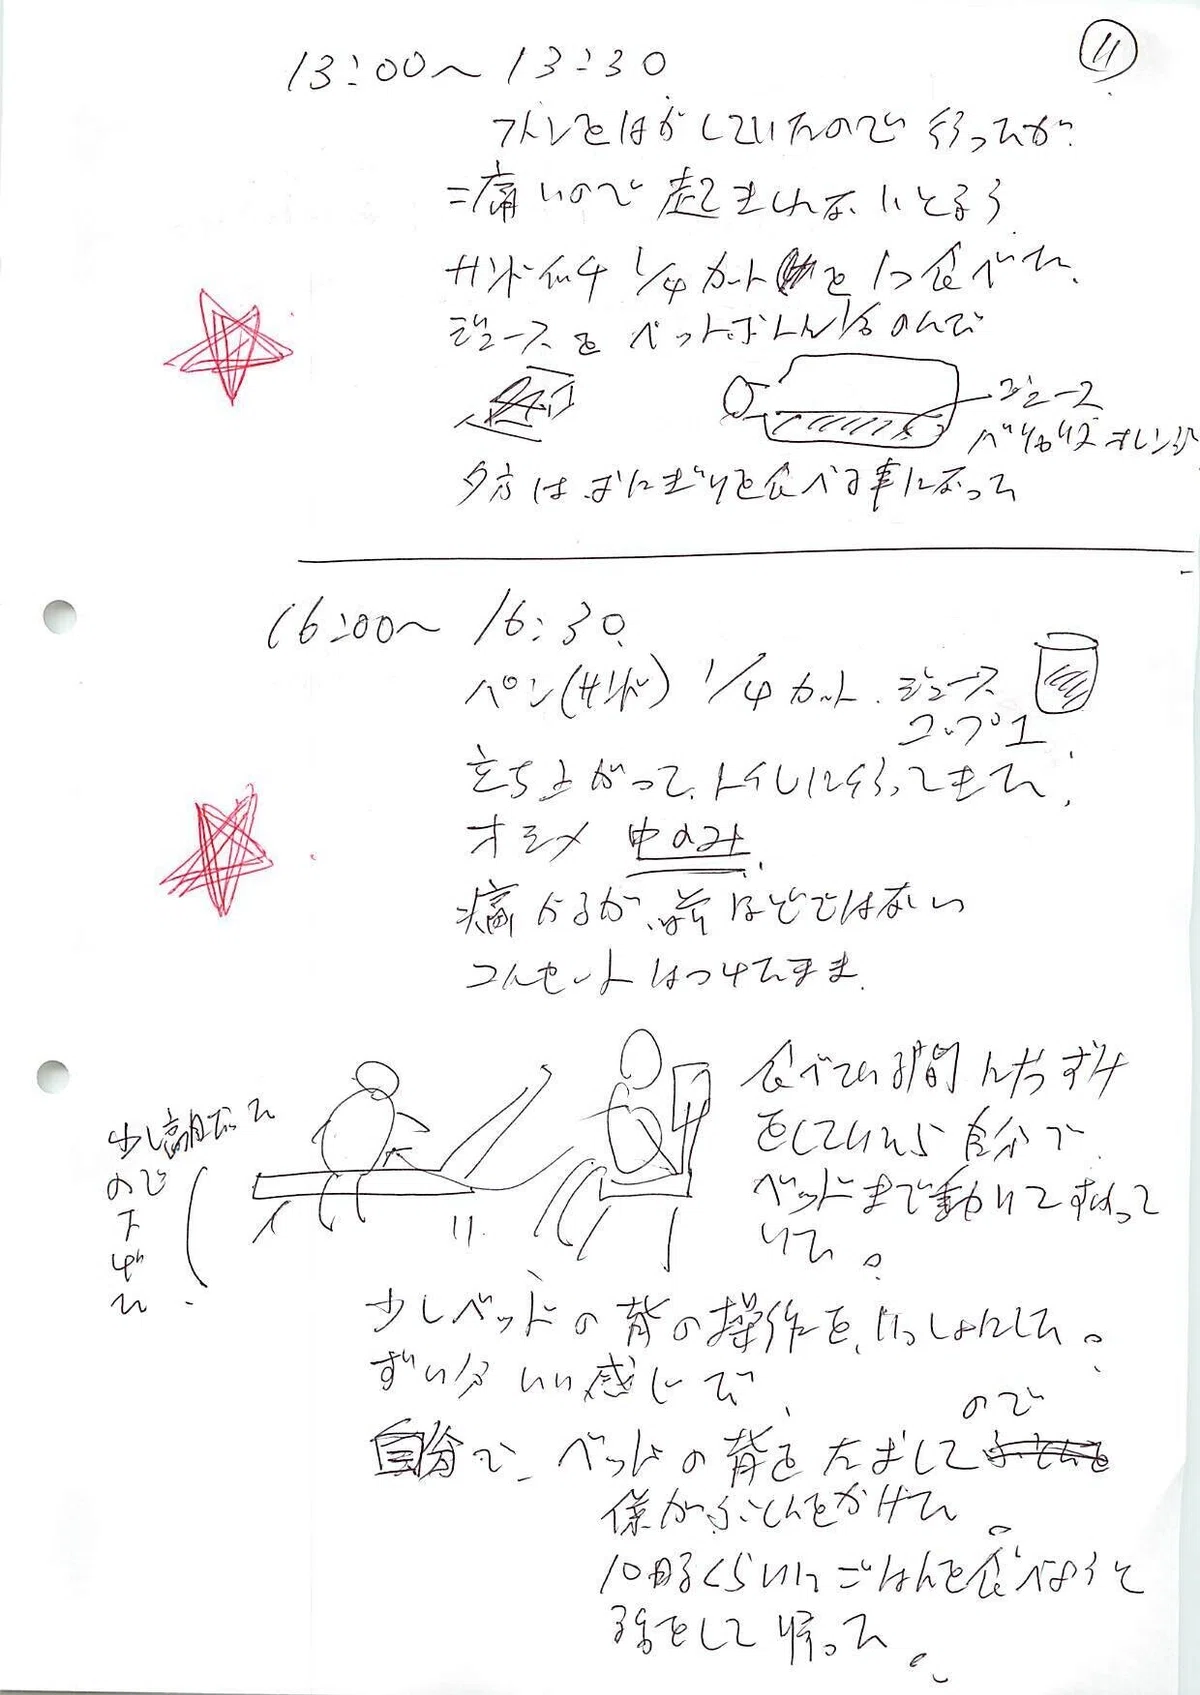 11
13:00〜13:30
フトンをはがしていたので行ったが
痛いので起きれないと言う
サンドイッチ 1/4カットを1つ食べた.
ジュースをペットボトル1/3のんで
ジュース
オレンジ
夕方はおにぎりを食べる事になった
16:00〜16:30
パン(サンド) 1/4カット.ジュース
コップ1
立ち上がって、トイレに行ってきた.
オシメ 中のみ
痛がるが、前ほどではない
コルセットはつけたまま.
食べている間
をしていたら自分で
ベッドまで動いてすわって
いた。
少し高
ので
下
げ
た.
少しベッドの背の操作を、いっしょにした。
ずい分いい感じで、
ので
自分で、ベッドの背をたおして
僕がふとんをかけた。
ごはんを食べようと
話をして帰った。